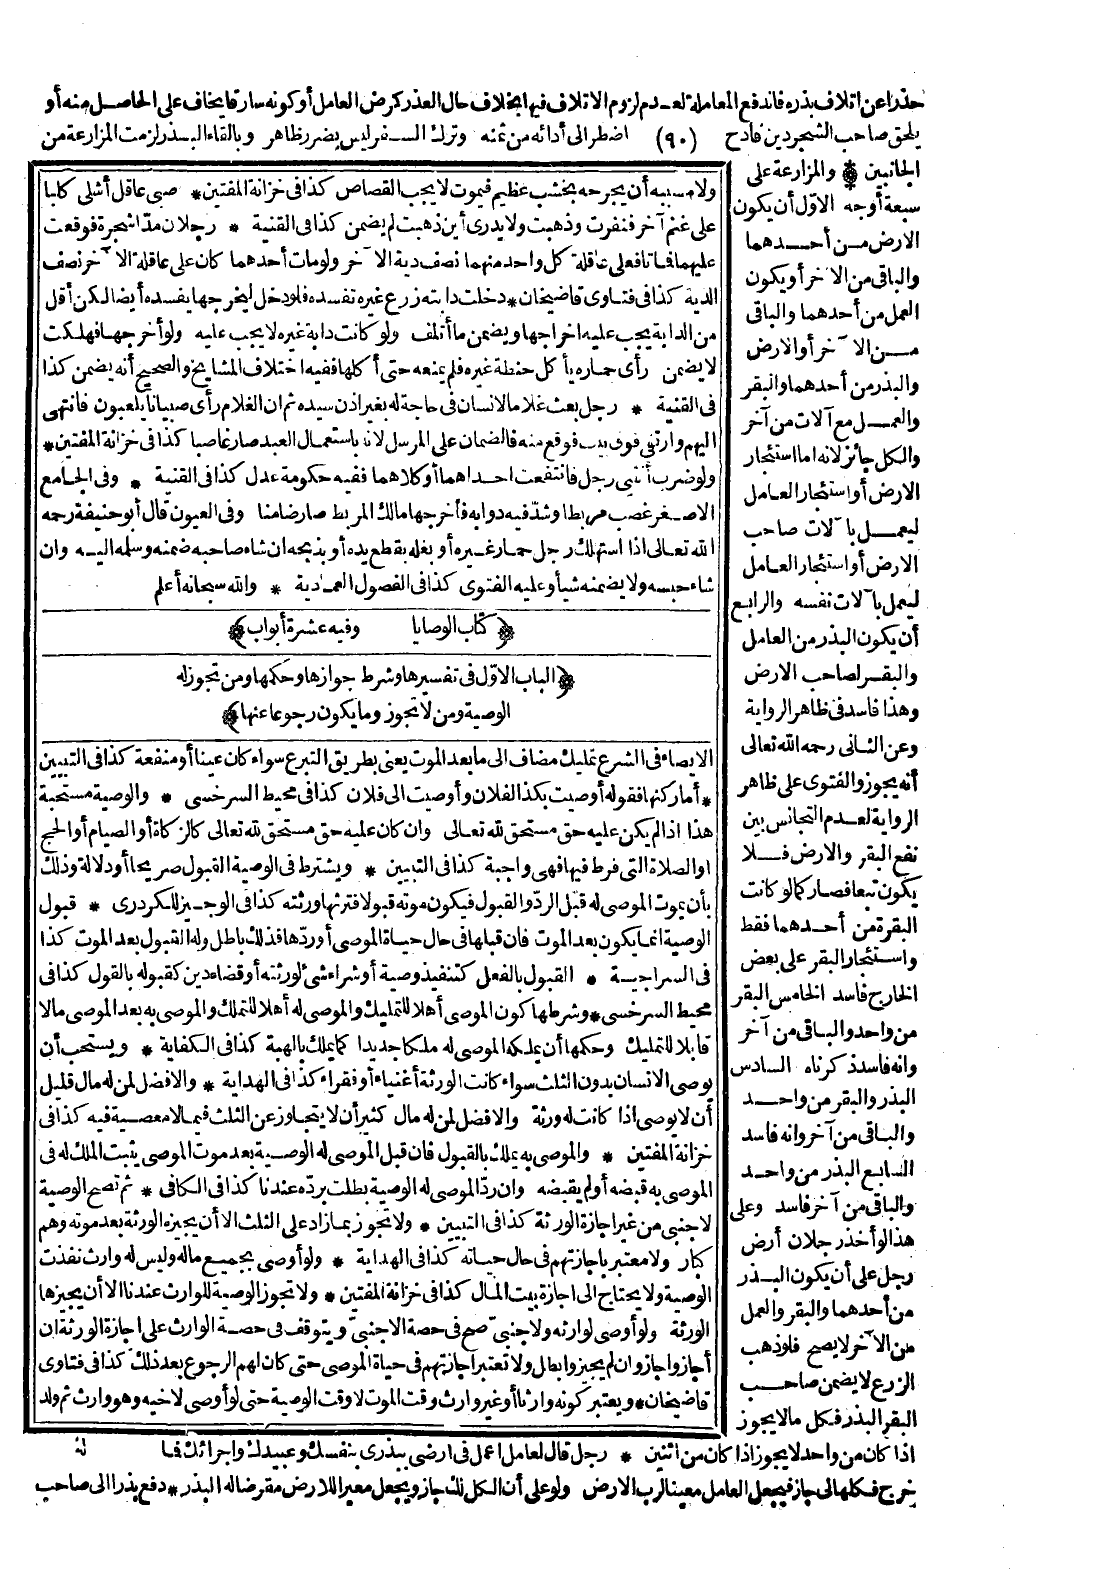 حذرا عن اتلاف بذره فاندفع المعاملة لعدم لزوم الاتلاف فيها بخلاف حال العذر كمرض العامل أو كونه سارقا يخاف على الحاصل منه أو
يلحق صاحب الشجر دين فادح (٩٠) اضطر الى أدائه من ثمنه وترك السفر ليس بضرر ظاهر وبالقاء البذر لزمت المزارعة من
الجانبين * والمزارعة على
سبعة أوجه الاوّل أن يكون
الارض من أحدهما
والباقى من الآخر أو يكون
العمل من أحدهما والباقى
من الآخر أو الارض
والبذر من أحدهما والبقر
والعمل مع آلات من آخر
والكل جائز لانه اما استئجار
الارض أو استئجار العامل
ليعمل بآلات صاحب
الارض أو استئجار العامل
ليعمل بآلات نفسه والرابع
أن يكون البذر من العامل
والبقر لصاحب الارض
وهذا فاسد فى ظاهر الرواية
وعن الثانى رحمه الله تعالى
أنه يجوز والفتوى على ظاهر
الرواية لعدم التجانس بين
نفع البقر والارض فلا
يكون تبعا فصار كما لو كانت
البقرة من أحدهما فقط
واستئجار البقر على بعض
الخارج فاسد الخامس البقر
من واحد والباقى من آخر
وانه فاسد ذكرناه السادس
البذر والبقر من واحد
والباقى من آخر وانه فاسد
السابع البذر من واحد
والباقى من آخر فاسد وعلى
هذا لو أخذ رجلان أرض
رجل على أن يكون البذر
من أحدهما والبقر والعمل
من الآخر لا يصح فلو ذهب
الزرع لا يضمن صاحب
البقر البذر فكل ما لا يجوز
اذا كان من واحد لا يجوز اذا كان من اثنين * رجل قال لعامل اعمل فى ارضى ببذرى بنفسك وعبيدك واجرائك فما
خرج فكلها لى جاز فيجعل العامل معينا لرب الارض ولو على أن الكل لك جاز ويجعل معيرا للارض مقرضا له البذر * دفع بذرا الى صاحب
ولا مسببه أن يجرحه بخشب عظيم فيموت لا يجب القصاص كذا فى خزانة المفتين * صبى عاقل أشلى كلبا
على غنم آخر فنفرت وذهبت ولا يدرى أين ذهبت لم يضمن كذا فى القنية * رجلان مدّا شجرة فوقعت
عليهما فماتا فعلى عاقلة كل واحد منهما نصف دية الآخر ولو مات أحدهما كان على عاقلة الآخر نصف
الدية كذا فى فتاوى قاضيخان * دخلت دابته زرع غيره تفسده فلو دخل ليخرجها يفسده أيضا لكن أقل
من الدابة يجب عليه اخراجها ويضمن ما أتلف ولو كانت دابة غيره لا يجب عليه ولو أخرجها فهلكت
لا يضمن رأى حماره يأكل حنطة غيره فلم يمنعه حتى أكلها ففيه اختلاف المشايخ والصحيح أنه يضمن كذا
فى القنية * رجل بعث غلاما لانسان فى حاجة له بغير اذن سيده ثم ان الغلام رأى صبيانا يلعبون فانتهى
اليهم وارتقى فوق بيت فوقع منه فالضمان على المرسل لانه باستعمال العبد صار غاصبا كذا فى خزانة المفتين *
ولو ضرب أنثيى رجل فانتفخت احداهما أو كلاهما ففيه حكومة عدل كذا فى القنية * وفى الجامع
الاصغر غصب مربطا وشدّ فيه دوابه فأخرجها مالك المربط صار ضامنا وفى العيون قال أبو حنيفة رحمه
الله تعالى اذا استهلك رجل حمار غيره أو بغله بقطع يده أو بذبحه ان شاء صاحبه ضمنه وسلمه اليه وان
شاء حبسه ولا يضمنه شيأ وعليه الفتوى كذا فى الفصول العمادية * والله سبحانه أعلم
﴿كتاب الوصايا وفيه عشرة أبواب﴾
﴿الباب الاوّل فى تفسيرها وشرط جوازها وحكمها ومن تجوز له
الوصية ومن لا تجوز وما يكون رجوعا عنها﴾
الايصاء فى الشرع تمليك مضاف الى ما بعد الموت يعنى بطريق التبرع سواء كان عينا أو منفعة كذا فى التبيين
* أما ركنها فقوله أوصيت بكذا لفلان وأوصيت الى فلان كذا فى محيط السرخسى * والوصية مستحبة
هذا اذا لم يكن عليه حق مستحق لله تعالى وان كان عليه حق مستحق لله تعالى كالزكاة أو الصيام أو الحج
او الصلاة التى فرط فيها فهى واجبة كذا فى التبيين * ويشترط فى الوصية القبول صريحا أو دلالة وذلك
بأن يموت الموصى له قبل الردّ والقبول فيكون موته قبولا فترثها ورثته كذا فى الوجيز للكردرى * قبول
الوصية انما يكون بعد الموت فان قبلها فى حال حياة الموصى أو ردّها فذلك باطل وله القبول بعد الموت كذا
فى السراجية * القبول بالفعل كتنفيذ وصية أو شراء شئ لورثته أو قضاء دين كقبوله بالقول كذا فى
محيط السرخسى * وشرطها كون الموصى أهلا للتمليك والموصى له أهلا للتملك والموصى به بعد الموصى مالا
قابلا للتمليك وحكمها أن يملكه الموصى له ملكا جديدا كما يملك بالهبة كذا فى الكفاية * ويستحب أن
يوصى الانسان بدون الثلث سواء كانت الورثة أغنياء أو فقراء كذا فى الهداية * والافضل لمن له مال قليل
أن لا يوصى اذا كانت له ورثة والافضل لمن له مال كثير أن لا يتجاوز عن الثلث فيما لا معصية فيه كذا فى
خزانة المفتين * والموصى به يملك بالقبول فان قبل الموصى له الوصية بعد موت الموصى يثبت الملك له فى
الموصى به قبضه أو لم يقبضه وان ردّ الموصى له الوصية بطلت بردّه عندنا كذا فى الكافى * ثم تصح الوصية
لاجنبى من غير اجازة الورثة كذا فى التبيين * ولا تجوز بما زاد على الثلث الا أن يجيزه الورثة بعد موته وهم
كبار ولا معتبر باجازتهم فى حال حياته كذا فى الهداية * ولو أوصى بجميع ماله وليس له وارث نفذت
الوصية ولا يحتاج الى اجازة بيت المال كذا فى خزانة المفتين * ولا تجوز الوصية للوارث عندنا الا أن يجيزها
الورثة ولو أوصى لوارثه ولاجنبىّ صح فى حصة الاجنبىّ ويتوقف فى حصة الوارث على اجازة الورثة ان
أجازوا جاز وان لم يجيزوا بطل ولا تعتبر اجازتهم فى حياة الموصى حتى كان لهم الرجوع بعد ذلك كذا فى فتاوى
قاضيخان * ويعتبر كونه وارثا أو غير وارث وقت الموت لا وقت الوصية حتى لو أوصى لاخيه وهو وارث ثم ولد
له